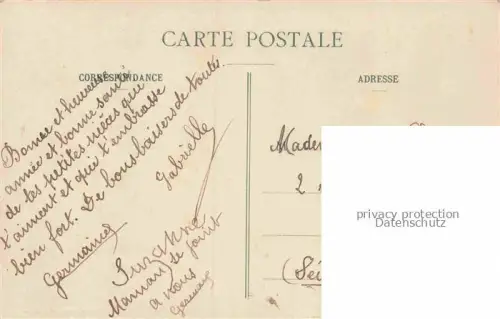 CARTE POSTALE
CORRESPONDANCE
ADRESSE
Bonne et heureuse
année et bonne santé
de tes petites nièces qui
t'aiment et qui t'embrasse
bien fort. De bons baisers de toutes.
Germaine
Gabrielle
Suzanne
Maman se joint
a nous
Germaine
Madem
2
(Sei
privacy protection
Datenschutz